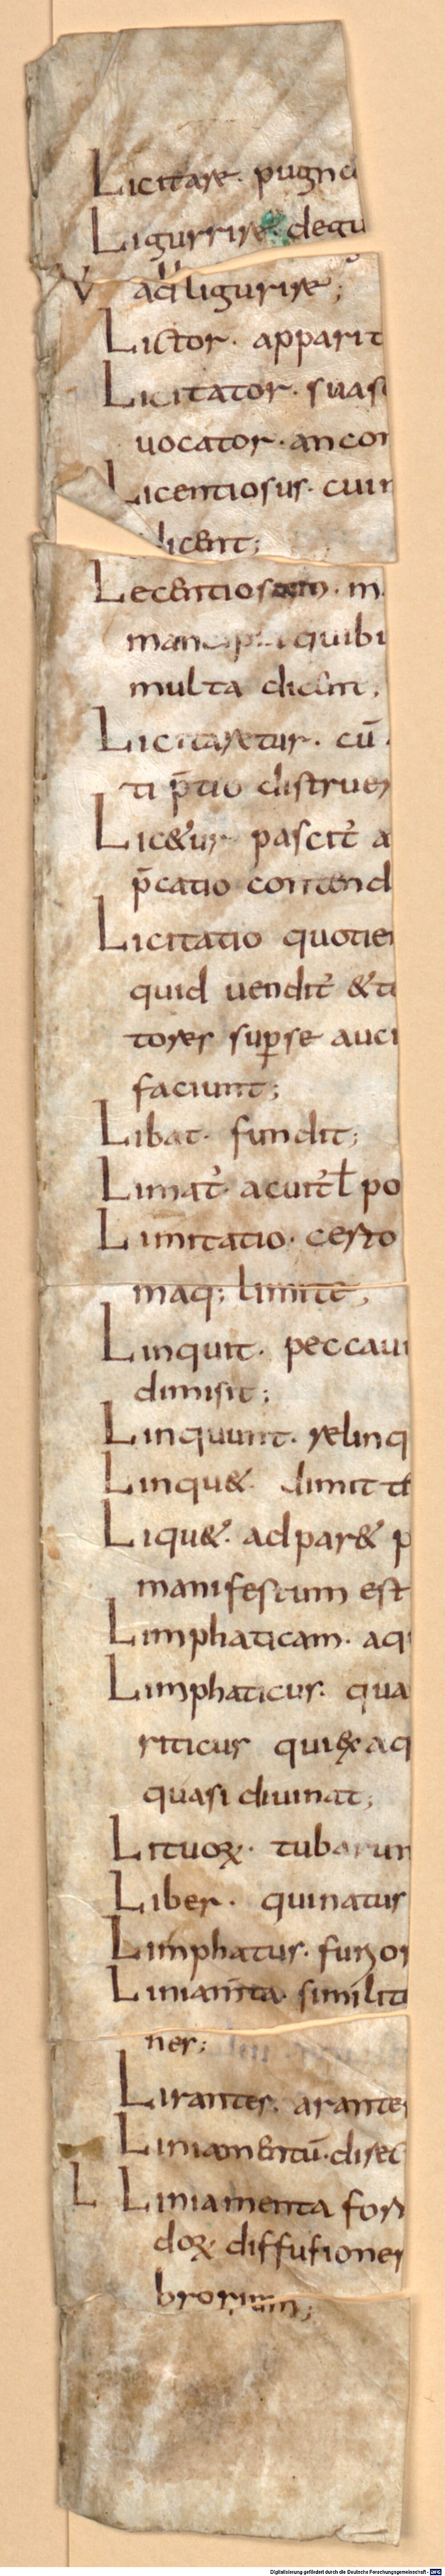 Licitare · pugna
Ligurrire · degu
V adiligurire ;
Lictor · apparit
Licitator · suas
uocator · ancon
Licentiosus · cuin
licent ;
Lecentiosam · m
mancipia quibu
multa dicunt ,
Licitaretur · cū
ti p̄tio distruer
Lic&ur pascit̉ a
p̄catio contend
Licitatio quotien
quid uendit̉ &ti
tores sup se auci
faciunt ;
Libat · fundit ;
Limat̉ · acuit̉ ł po
Limitatio · certo
maq; limite ,
Linquit · peccaui
dimisit ;
Linquunt · relinq
Linqu& dimitt
Liqu& · adpar& p
manifestum est
Limphaticam · aq
Limphaticus · qua
riticus qui ex aq
quasi diuinat ;
Lituoꝝ · tubarum
Liber · quinatus
Limphatus · furor
Liniam̄ta · similitu
nes ;
Lirantes · arantes
Liniamentū · direc
L Liniamenta for
doꝝ diffusiones
brorum ;
Digitalisierung gefördert durch die Deutsche Forschungsgemeinschaft - DFG